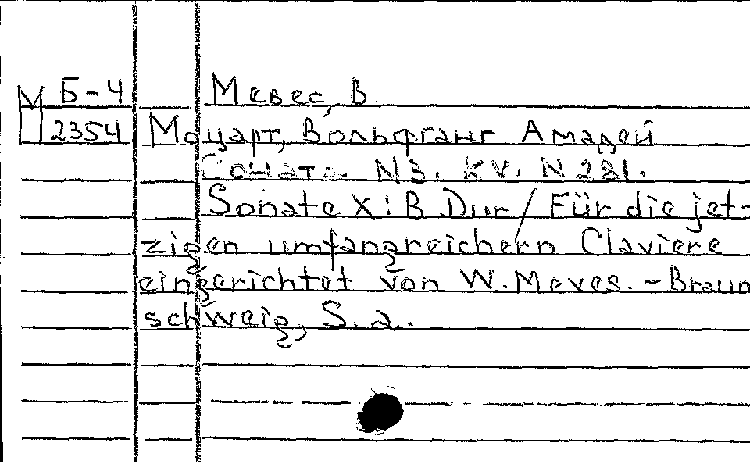 М Б-4 Мевес, В
2354 Моцарт, Вольфганг Амадей
Соната N3. KV. N 281.
Sonate X: B Dur / Für die jet-
zigen umfangreichern Claviere
eingerichtet von W. Meves. - Braun
schweig, S. a.